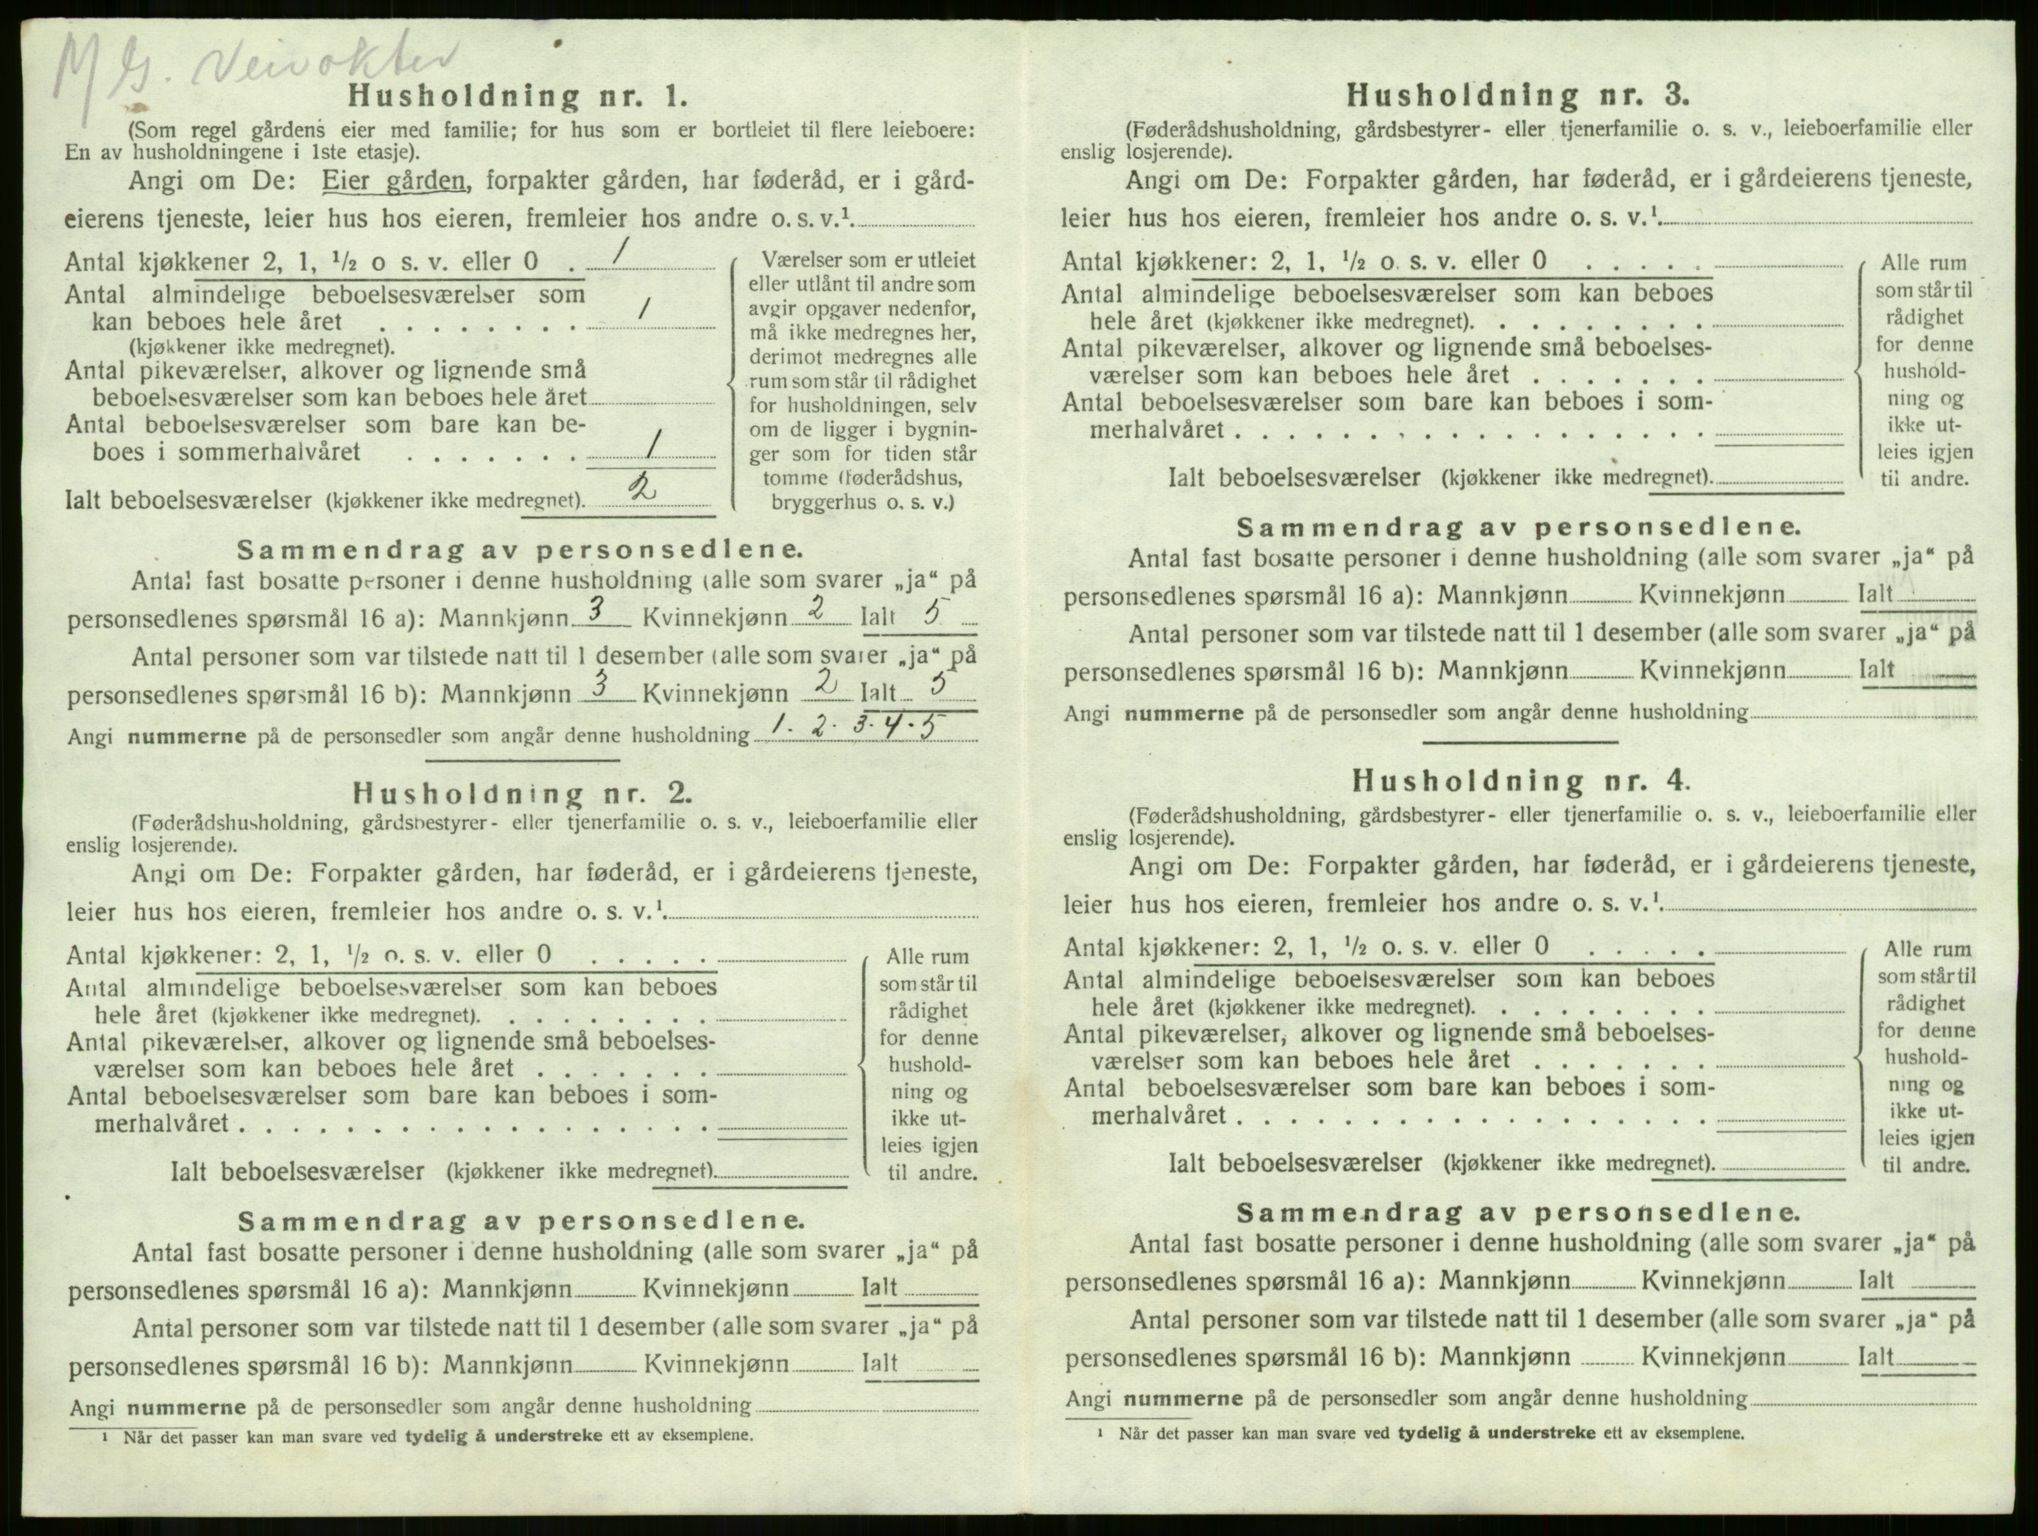 M G. Veivokter
Husholdning nr. 1.
(Som regel gårdens eier med familie; for hus som er bortleiet til flere leieboere:
En av husholdningene i 1ste etasje).
Angi om De: Eier gården, forpakter gården, har føderåd, er i gård-
eierens tjeneste, leier hus hos eieren, fremleier hos andre o. s. v.¹
Antal kjøkkener 2, 1, ½ o s. v. eller 0 . 1
Antal almindelige beboelsesværelser som
kan beboes hele året . . . . . . . . 1
(kjøkkener ikke medregnet).
Antal pikeværelser, alkover og lignende små
beboelsesværelser som kan beboes hele året
Antal beboelsesværelser som bare kan be-
boes i sommerhalvåret . . . . . . . 1
Ialt beboelsesværelser (kjøkkener ikke medregnet). 2
Værelser som er utleiet
eller utlånt til andre som
avgir opgaver nedenfor,
må ikke medregnes her,
derimot medregnes alle
rum som står til rådighet
for husholdningen, selv
om de ligger i bygnin-
ger som for tiden står
tomme (føderådshus,
bryggerhus o. s. v.)
Sammendrag av personsedlene.
Antal fast bosatte personer i denne husholdning (alle som svarer „ja“ på
personsedlenes spørsmål 16 a): Mannkjønn 3 Kvinnekjønn 2 Ialt 5
Antal personer som var tilstede natt til 1 desember (alle som svarer „ja“ på
personsedlenes spørsmål 16 b): Mannkjønn 3 Kvinnekjønn 2 Ialt 5
Angi nummerne på de personsedler som angår denne husholdning 1. 2. 3. 4. 5
Husholdning nr. 2.
(Føderådshusholdning, gårdsbestyrer- eller tjenerfamilie o. s. v., leieboerfamilie eller
enslig losjerende).
Angi om De: Forpakter gården, har føderåd, er i gårdeierens tjeneste,
leier hus hos eieren, fremleier hos andre o. s. v.¹
Antal kjøkkener: 2, 1, ½ o. s. v. eller 0 . . . . .
Antal almindelige beboelsesværelser som kan beboes
hele året (kjøkkener ikke medregnet). . . . . . . . .
Antal pikeværelser, alkover og lignende små beboelses-
værelser som kan beboes hele året . . . . . . .
Antal beboelsesværelser som bare kan beboes i som-
merhalvåret . . . . . . . . . . . . . . . . . .
Ialt beboelsesværelser (kjøkkener ikke medregnet).
Alle rum
som står til
rådighet
for denne
hushold-
ning og
ikke ut-
leies igjen
til andre.
Sammendrag av personsedlene.
Antal fast bosatte personer i denne husholdning (alle som svarer „ja“ på
personsedlenes spørsmål 16 a): Mannkjønn Kvinnekjønn Ialt
Antal personer som var tilstede natt til 1 desember (alle som svarer „ja“ på
personsedlenes spørsmål 16 b): Mannkjønn Kvinnekjønn Ialt
Angi nummerne på de personsedler som angår denne husholdning
¹ Når det passer kan man svare ved tydelig å understreke ett av eksemplene.
Husholdning nr. 3.
(Føderådshusholdning, gårdsbestyrer- eller tjenerfamilie o. s. v., leieboerfamilie eller
enslig losjerende).
Angi om De: Forpakter gården, har føderåd, er i gårdeierens tjeneste,
leier hus hos eieren, fremleier hos andre o. s. v.¹
Antal kjøkkener: 2, 1, ½ o. s. v. eller 0 . . . . .
Antal almindelige beboelsesværelser som kan beboes
hele året (kjøkkener ikke medregnet). . . . . . . . .
Antal pikeværelser, alkover og lignende små beboelses-
værelser som kan beboes hele året . . . . . . .
Antal beboelsesværelser som bare kan beboes i som-
merhalvåret . . . . . . . . . . . . . . . . . .
Ialt beboelsesværelser (kjøkkener ikke medregnet).
Alle rum
som står til
rådighet
for denne
hushold-
ning og
ikke ut-
leies igjen
til andre.
Sammendrag av personsedlene.
Antal fast bosatte personer i denne husholdning (alle som svarer „ja“ på
personsedlenes spørsmål 16 a): Mannkjønn Kvinnekjønn Ialt
Antal personer som var tilstede natt til 1 desember (alle som svarer „ja“ på
personsedlenes spørsmål 16 b): Mannkjønn Kvinnekjønn Ialt
Angi nummerne på de personsedler som angår denne husholdning
Husholdning nr. 4.
(Føderådshusholdning, gårdsbestyrer- eller tjenerfamilie o. s. v., leieboerfamilie eller
enslig losjerende).
Angi om De: Forpakter gården, har føderåd, er i gårdeierens tjeneste,
leier hus hos eieren, fremleier hos andre o. s. v.¹
Antal kjøkkener: 2, 1, ½ o. s. v. eller 0 . . . . .
Antal almindelige beboelsesværelser som kan beboes
hele året (kjøkkener ikke medregnet). . . . . . . . .
Antal pikeværelser, alkover og lignende små beboelses-
værelser som kan beboes hele året . . . . . . .
Antal beboelsesværelser som bare kan beboes i som-
merhalvåret . . . . . . . . . . . . . . . . . .
Ialt beboelsesværelser (kjøkkener ikke medregnet).
Alle rum
som står til
rådighet
for denne
hushold-
ning og
ikke ut-
leies igjen
til andre.
Sammendrag av personsedlene.
Antal fast bosatte personer i denne husholdning (alle som svarer „ja“ på
personsedlenes spørsmål 16 a): Mannkjønn Kvinnekjønn Ialt
Antal personer som var tilstede natt til 1 desember (alle som svarer „ja“ på
personsedlenes spørsmål 16 b): Mannkjønn Kvinnekjønn Ialt
Angi nummerne på de personsedler som angår denne husholdning
¹ Når det passer kan man svare ved tydelig å understreke ett av eksemplene.